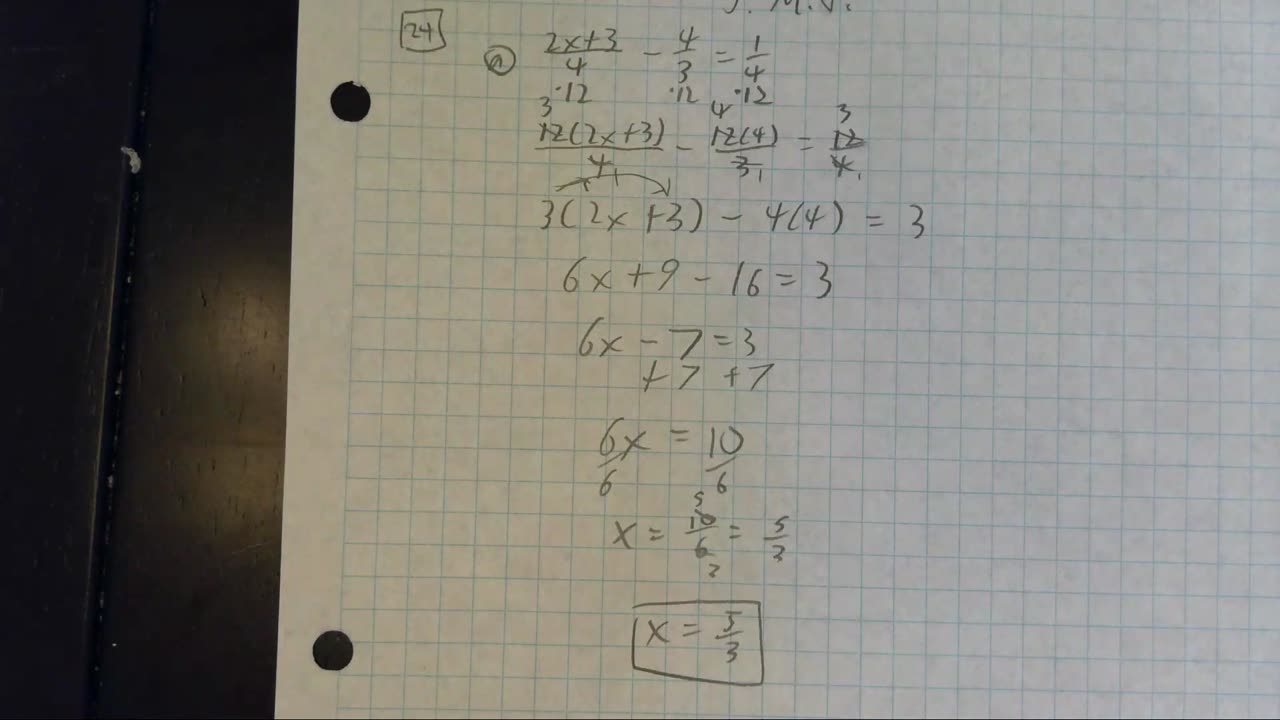 J. M. J.
24
a 2x+3/4 - 4/3 = 1/4
·12 ·12 ·12
3 4 3
12(2x+3)/4 1 - 12(4)/3 1 = 12/4 1
3(2x+3) - 4(4) = 3
6x+9 - 16 = 3
6x - 7 = 3
+7 +7
6x/6 = 10/6
5
x = 10/6 = 5/3
3
x = 5/3